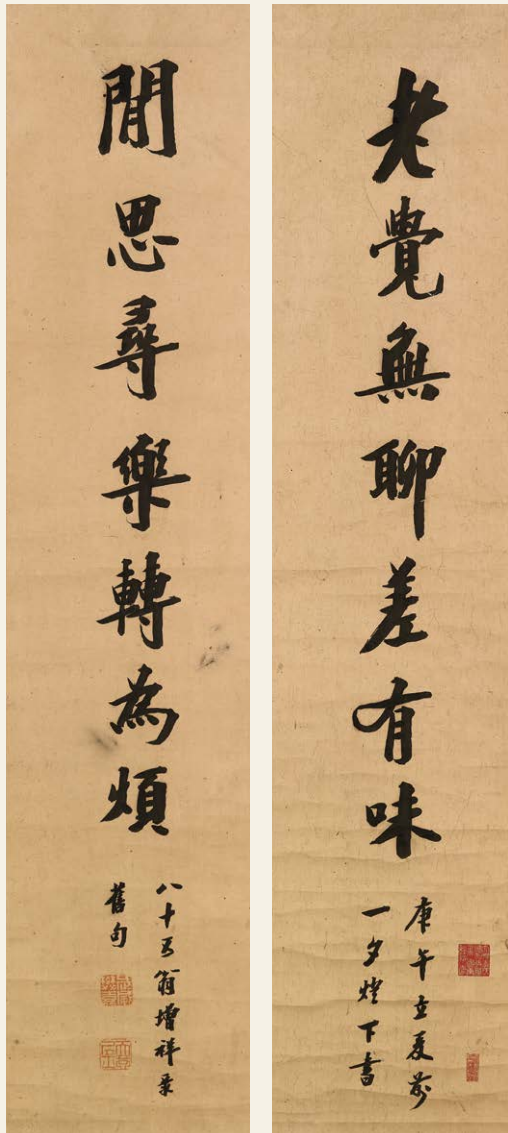 老覺無聊差有味
庚午立夏前
一夕燈下書
閒思尋樂轉為煩
八十五翁增祥
舊句